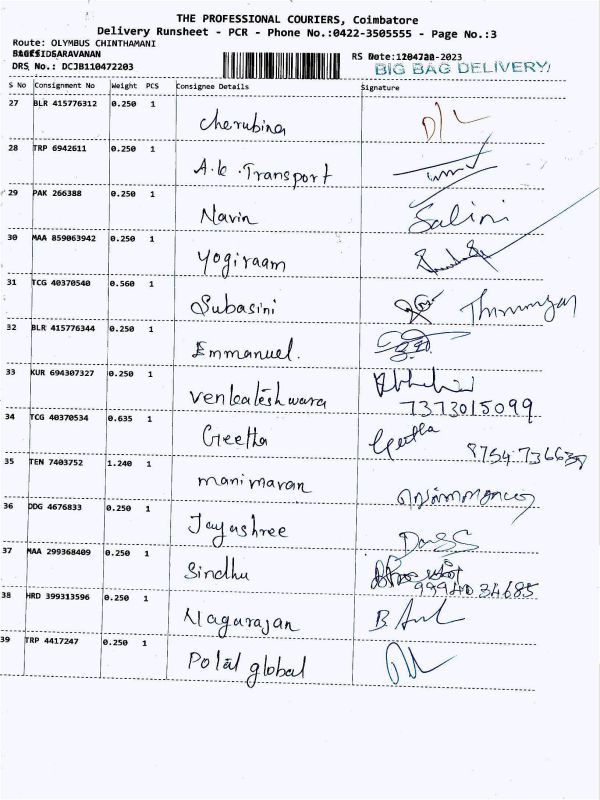 THE PROFESSIONAL COURIERS, Coimbatore
Delivery Runsheet - PCR - Phone No.:0422-3505555 - Page No.:3
Route: OLYMBUS CHINTHAMANI
SARAVANAN RS Date: -2023
DRS No.: DCJB110472203 BIG BAG DELIVERY
S No Consignment No Weight PCS Consignee Details Signature
27 BLR 415776312 0.250 1 Cherubina D/L
28 TRP 6942611 0.250 1 A.k. Transport
29 PAK 266388 0.250 1 Navin Salini
30 MAA 859063942 0.250 1 Yogiraam
31 TCG 40370540 0.560 1 Subasini
32 BLR 415776344 0.250 1 Emmanuel.
33 KUR 694307327 0.250 1 Venkateshwara
7373015099
34 TCG 40370534 0.635 1 Geetha Geetha
35 TEN 7403752 1.240 1 manimaran
36 DDG 4676833 0.250 1 Jayashree
37 MAA 299368409 0.250 1 Sindhu
9994034685
38 HRD 399313596 0.250 1 Nagarajan
39 TRP 4417247 0.250 1 Polal global